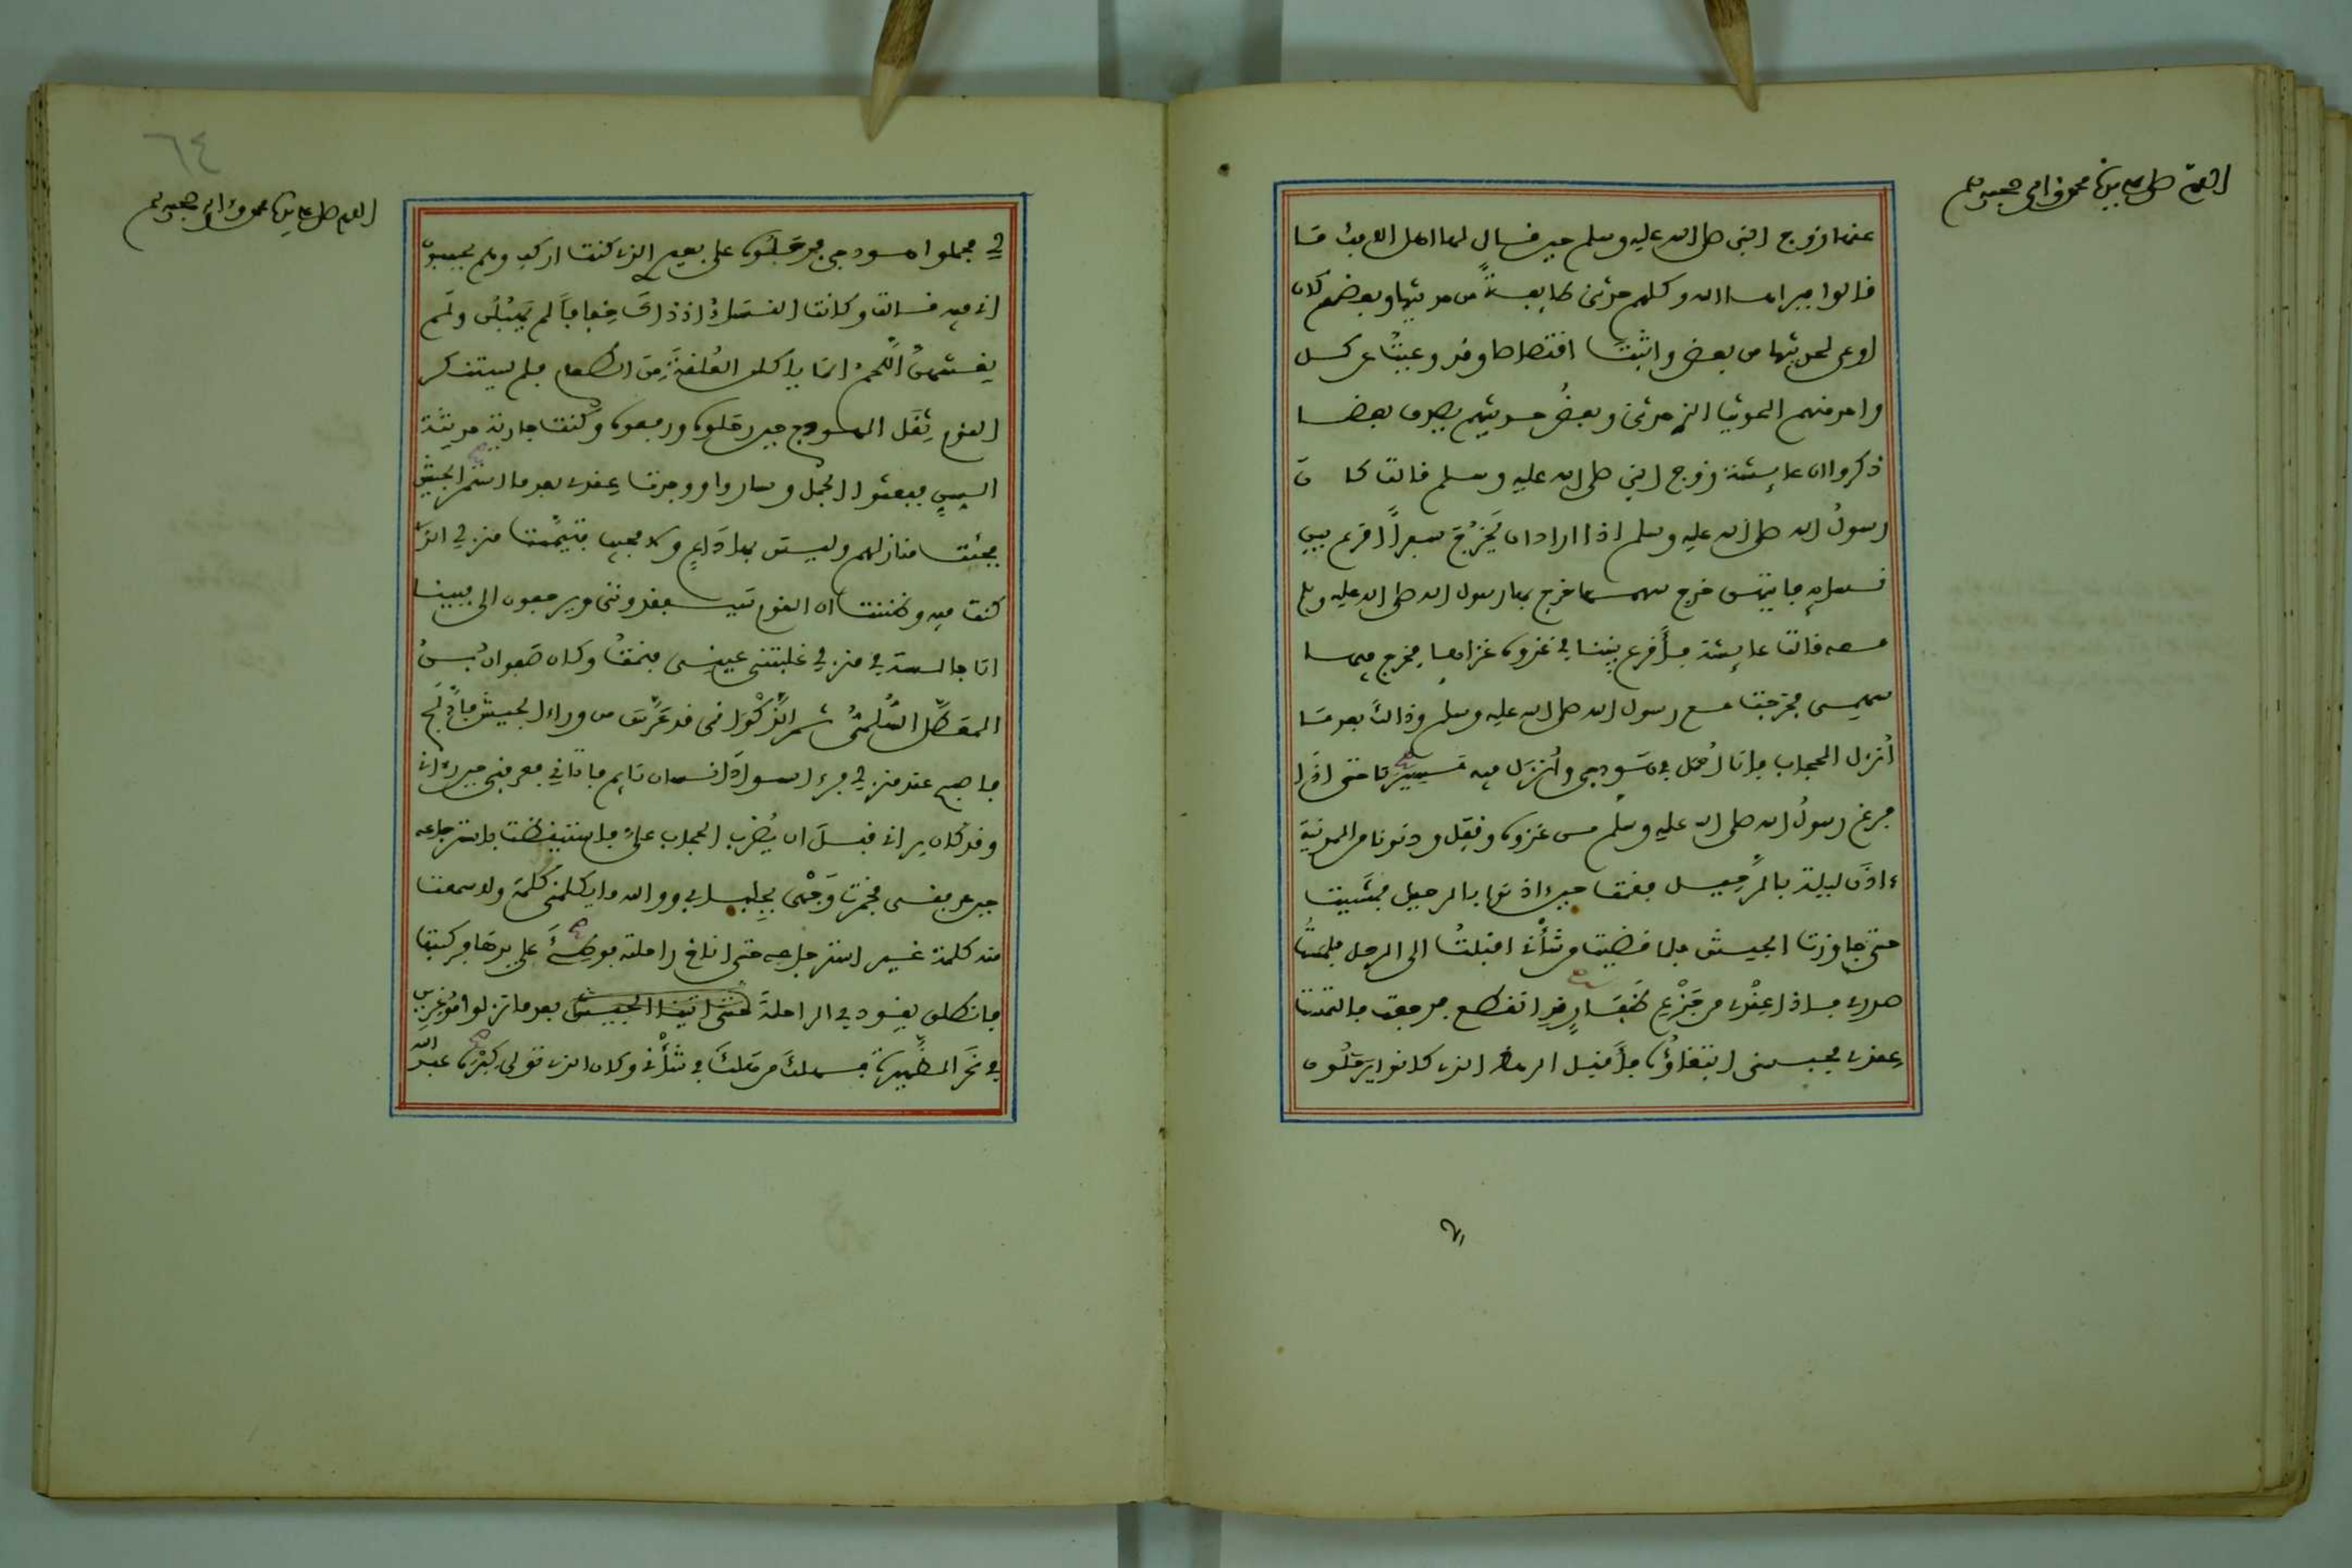 اللهم صل على سيدنا محمد وآله وصحبه وسلم
عنها زوج النبي صلى الله عليه وسلم حين قال لها اهل الافك ما
قالوا فبرأها الله وكلهم حدثني طايفة من حديثها وبعضهم كان
اوعى لحديثها من بعض واثبت اقتصاصا وقد وعيت عن كل
واحد منهم الحديث الذي حدثني وبعض حديثهم يصدق بعضا
ذكروا ان عايشة زوج النبي صلى الله عليه وسلم قالت كان
رسول الله صلى الله عليه وسلم اذا اراد ان يخرج سفرا اقرع بين
نسايه فايتهن خرج سهمها خرج بها رسول الله صلى الله عليه وسلم
معه قالت عايشة فأقرع بيننا في غزوة غزاها فخرج فيها
سهمي فخرجت مع رسول الله صلى الله عليه وسلم وذالك بعد ما
أنزل الحجاب فانا أحمل في هودجي وأنزل فيه فسرنا حتى اذا
فرغ رسول الله صلى الله عليه وسلم من غزوه وقفل ودنونا من المدينة
ءاذن ليلة بالرحيل فقمت حين اذنوا بالرحيل فمشيت
حتى جاوزت الجيش فلما قضيت من شأني اقبلت الى الرحل فلمست
صدري فاذا عقدي من جزع ظفار قد انقطع فرجعت فالتمست
عقدي فحبسني ابتغاؤه فأقبل الرهط الذين كانوا يرحلون
لي
٦٤
اللهم صل على سيدنا محمد وآله وصحبه وسلم
لي فحملوا هودجي فرحلوه على بعيري الذي كنت اركب وهم يحسبون
اني فيه قالت وكانت النساء اذ ذاك خفافا لم يهبلن ولم
يغشهن اللحم انما ياكلن العلقة من الطعام فلم يستنكر
القوم ثقل الهودج حين رحلوه ورفعوه وكنت جارية حديثة
السن فبعثوا الجمل وساروا ووجدت عقدي بعد ما استمر الجيش
فجئت منازلهم وليس بها داع ولا مجيب فتيممت منزلي الذي
كنت فيه وظننت ان القوم سيفقدونني ويرجعون الي فبينا
انا جالسة في منزلي غلبتني عيني فنمت وكان صفوان بن
المعطل السلمي ثم الذكواني قد عرس من وراء الجيش فادلج
فاصبح عند منزلي فرءا سواد انسان نايم فاتاني فعرفني حين رءاني
وقد كان يراني قبل ان يضرب الحجاب علي فاستيقظت باسترجاعه
حين عرفني فخمرت وجهي بجلبابي ووالله ما يكلمني كلمة ولا سمعت
منه كلمة غير استرجاعه حتى اناخ راحلته فوطئ على يدها فركبتها
فانطلق يقود بي الراحلة حتى اتينا الجيش بعد ما نزلوا موغرين
في نحر الظهيرة فهلك من هلك في شأني وكان الذي تولى كبره عبد الله